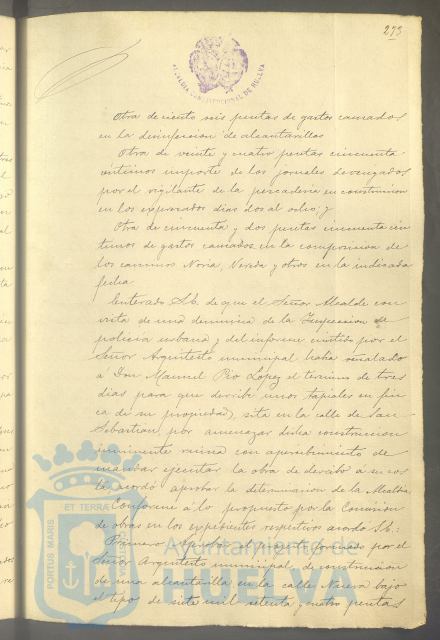 273
ALCALDIA CONSTITUCIONAL DE HUELVA
Otra de ciento seis pesetas de gastos causados
en la desinfeccion de alcantarillas
Otra de veinte y cuatro pesetas cincuenta
centimos importe de los jornales devengados
por el vigilante de la pescaderia en construccion
en los expresados dias dos al ocho, y
Otra de cincuenta y dos pesetas cincuenta cen
timos de gastos causados en la compostura de
los caminos Noria, Vereda y otros en la indicada
fecha
Enterado S.E. de que el Señor Alcalde con
vista de una denuncia de la Inspeccion de
policia urbana y del informe emitido por el
Señor Arquitecto municipal habia señalado
a Don Manuel Pio López el termino de tres
dias para que derribe unos tapiales en fin
ca de su propiedad, sita en la calle de San
Sebastian por amenazar dicha construccion
inminente ruina con apercibimiento de
mandar ejecutar la obra de derribo a su cos
ta, acordó aprobar la determinacion de la Alcaldia
Conforme á lo propuesto por la Comision
de obras en los expedientes respectivos acordo S.E.:
Primero: Aprobar el proyecto formado por el
Señor Arquitecto municipal de construccion
de una alcantarilla en la calle Nueva bajo
el tipo de siete mil setenta y cuatro pesetas
PORTUS MARIS
ET TERRAE
Ayuntamiento de
HUELVA